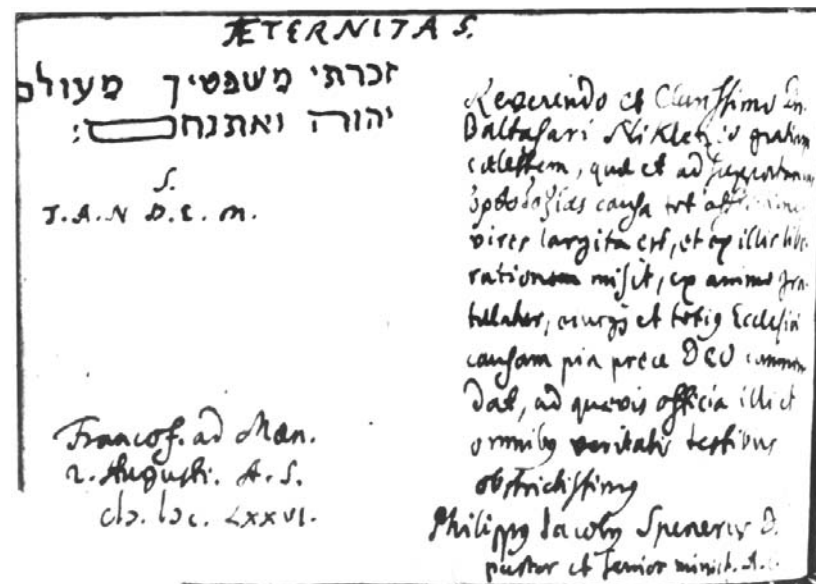 ÆTERNITAS.
זכרתי משפטיך מעולם
יהוה ואתנחם:
S.
T.A.N D.E.M.
Francof. ad Mœn.
2. Augusti. A. S.
cIɔ. Iɔc. LXXVI.
Reverendo et Clarissimo Dn.
Baltasari gratiam
cœlestem, quæ et ad
ὀρθοδοξίας causa tot
vires largita est, et ex illis libe-
rationem misit, ex animo gra-
tulatur, eiusq; et totiq Ecclesiæ
causam pia prece DEO commen
dat, ad quævis officia illi et
omnibq veritatis testibus
obstrictissimq
Philippq Jacobq Spenerus D.
pastor et senior minist.